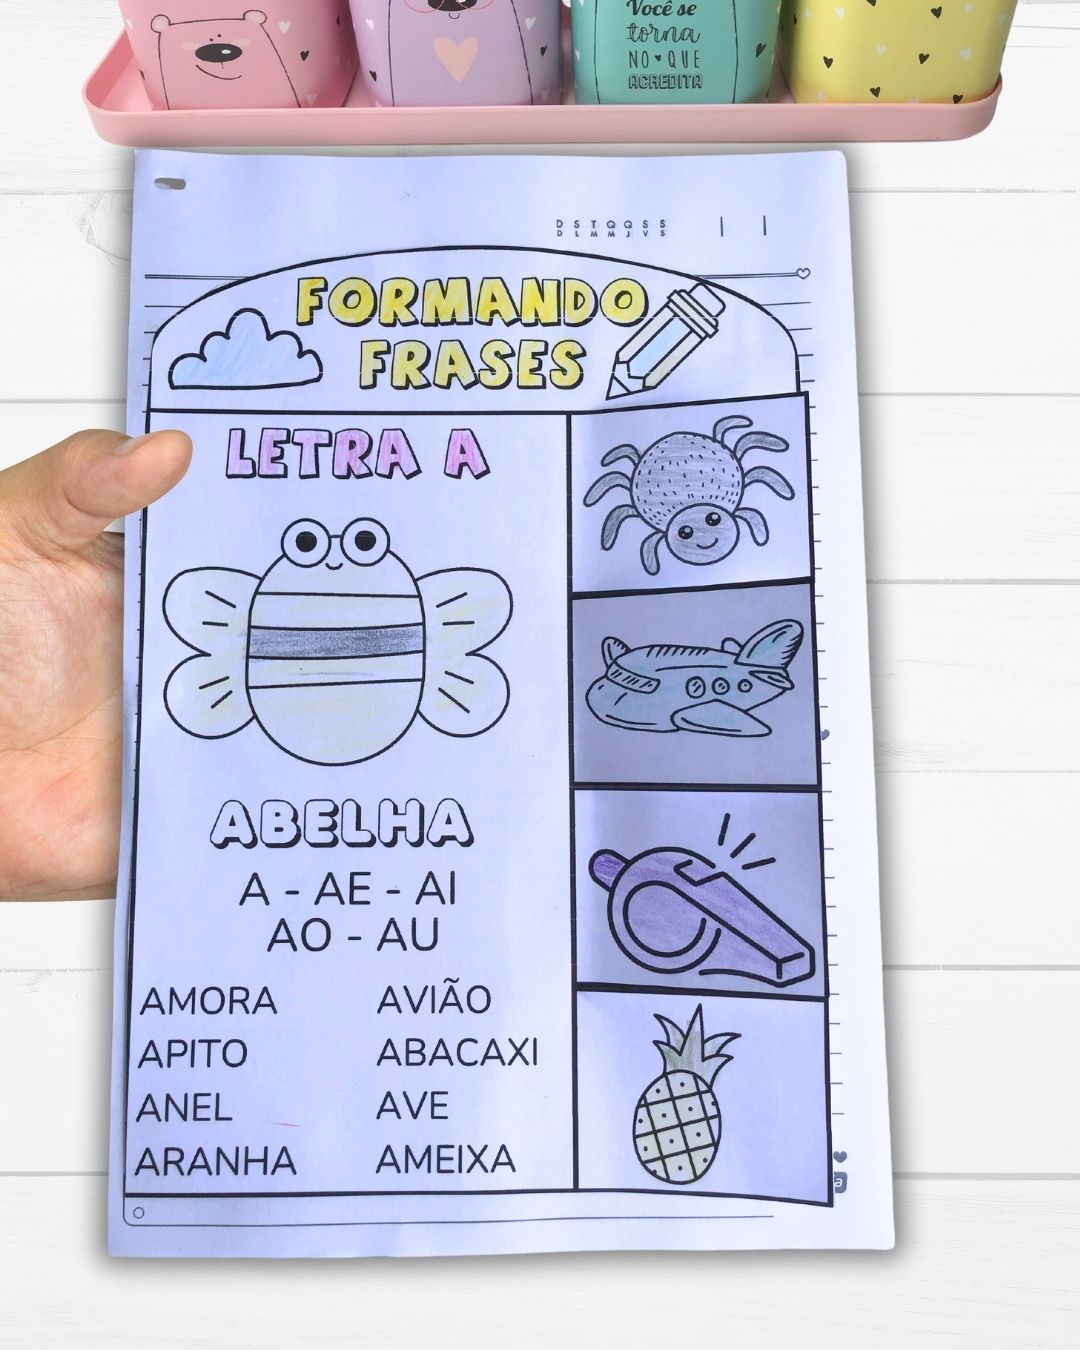 Você se
torna
NO QUE
ACREDITA
D S T Q Q S S
D L M M J V S
FORMANDO
FRASES
LETRA A
ABELHA
A - AE - AI
AO - AU
AMORA
APITO
ANEL
ARANHA
AVIÃO
ABACAXI
AVE
AMEIXA